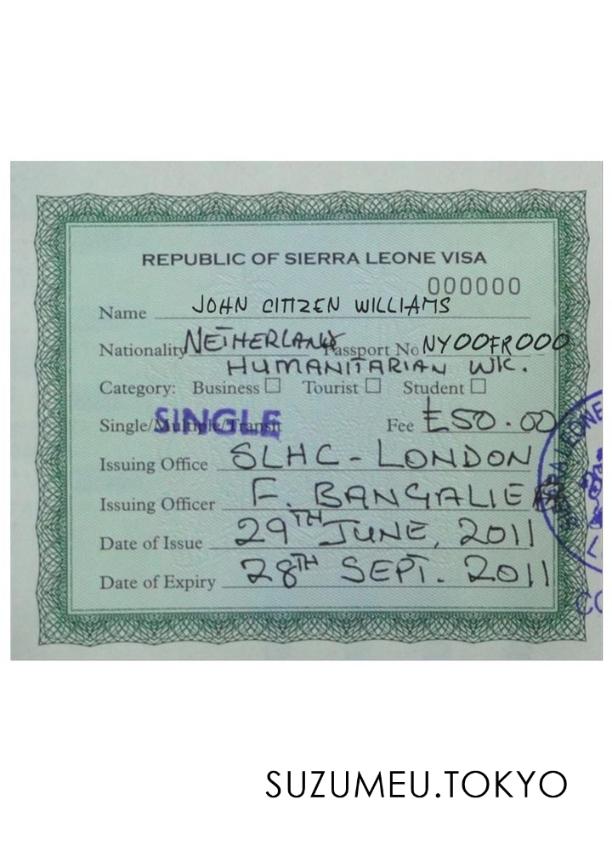 REPUBLIC OF SIERRA LEONE VISA
000000
Name JOHN CITIZEN WILLIAMS
Nationality NETHERLAND Passport No NY00FR000
HUMANITARIAN WK.
Category: Business Tourist Student
Single/Multiple/Transit SINGLE Fee £50.00
Issuing Office SLHC - LONDON
Issuing Officer F. BANGALIE
Date of Issue 29TH JUNE, 2011
Date of Expiry 28TH SEPT. 2011
LEONE
SUZUMEU.TOKYO